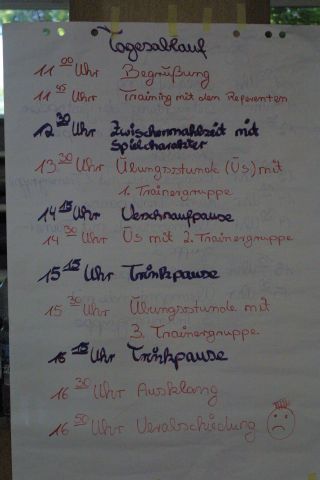 Tagesablauf
11 00 Uhr Begrüßung
11 45 Uhr Training mit dem Referenten
12 30 Uhr Zwischenmahlzeit mit
Spielcharakter
13 30 Uhr Übungsstunde (Üs) mit
1. Trainergruppe
14 15 Uhr Verschnaufpause
14 30 Uhr Üs mit 2. Trainergruppe
15 15 Uhr Trinkpause
15 30 Uhr Übungsstunde mit
3. Trainergruppe
16 15 Uhr Trinkpause
16 30 Uhr Ausklang
16 50 Uhr Verabschiedung